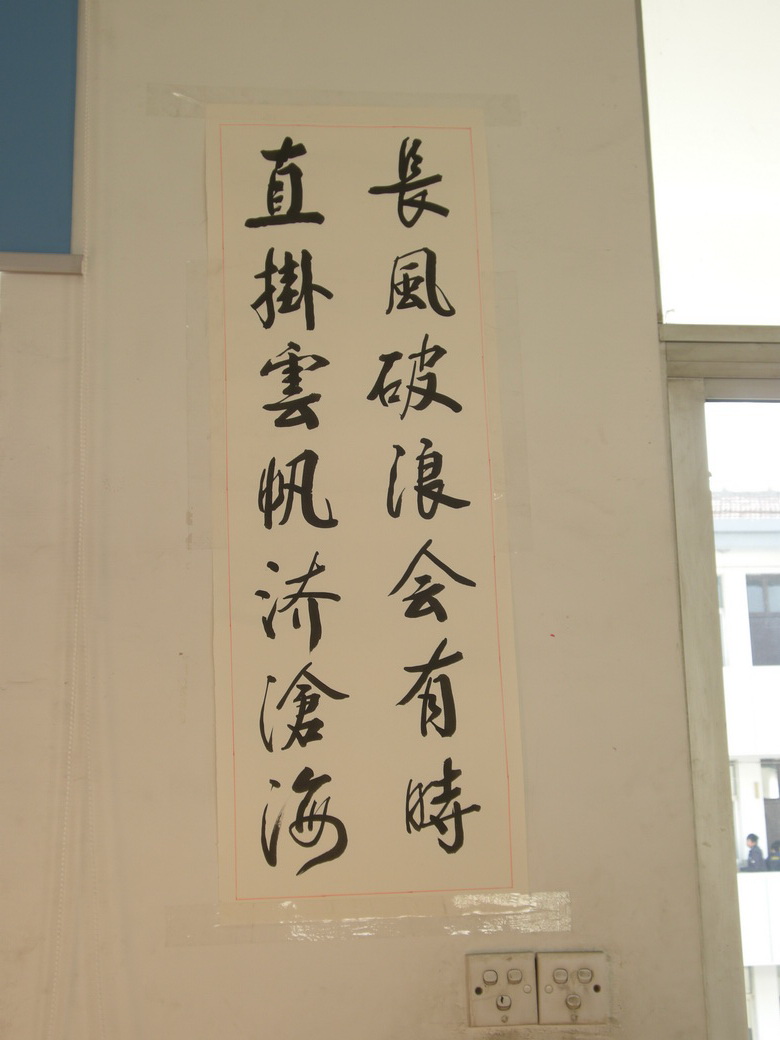 長風破浪会有時
直掛雲帆济滄海